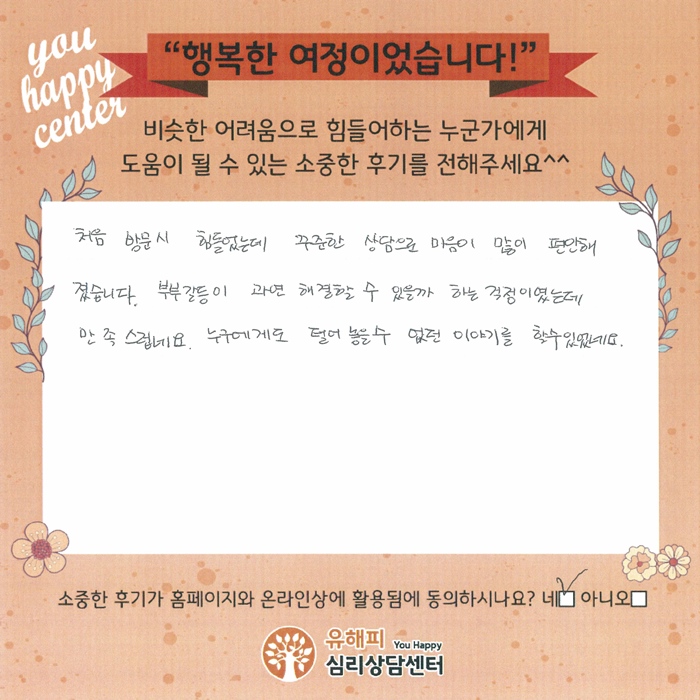 you
happy
center
“행복한 여정이었습니다!”
비슷한 어려움으로 힘들어하는 누군가에게
도움이 될 수 있는 소중한 후기를 전해주세요^^
처음 방문시 힘들었는데 꾸준한 상담으로 마음이 많이 편안해
졌습니다. 부부갈등이 과연 해결할 수 있을까 하는 걱정이였는데
만족스럽네요. 누구에게도 털어 놓을수 없던 이야기를 할수있었네요.
소중한 후기가 홈페이지와 온라인상에 활용됨에 동의하시나요? 네☑ 아니오☐
유해피 You Happy
심리상담센터